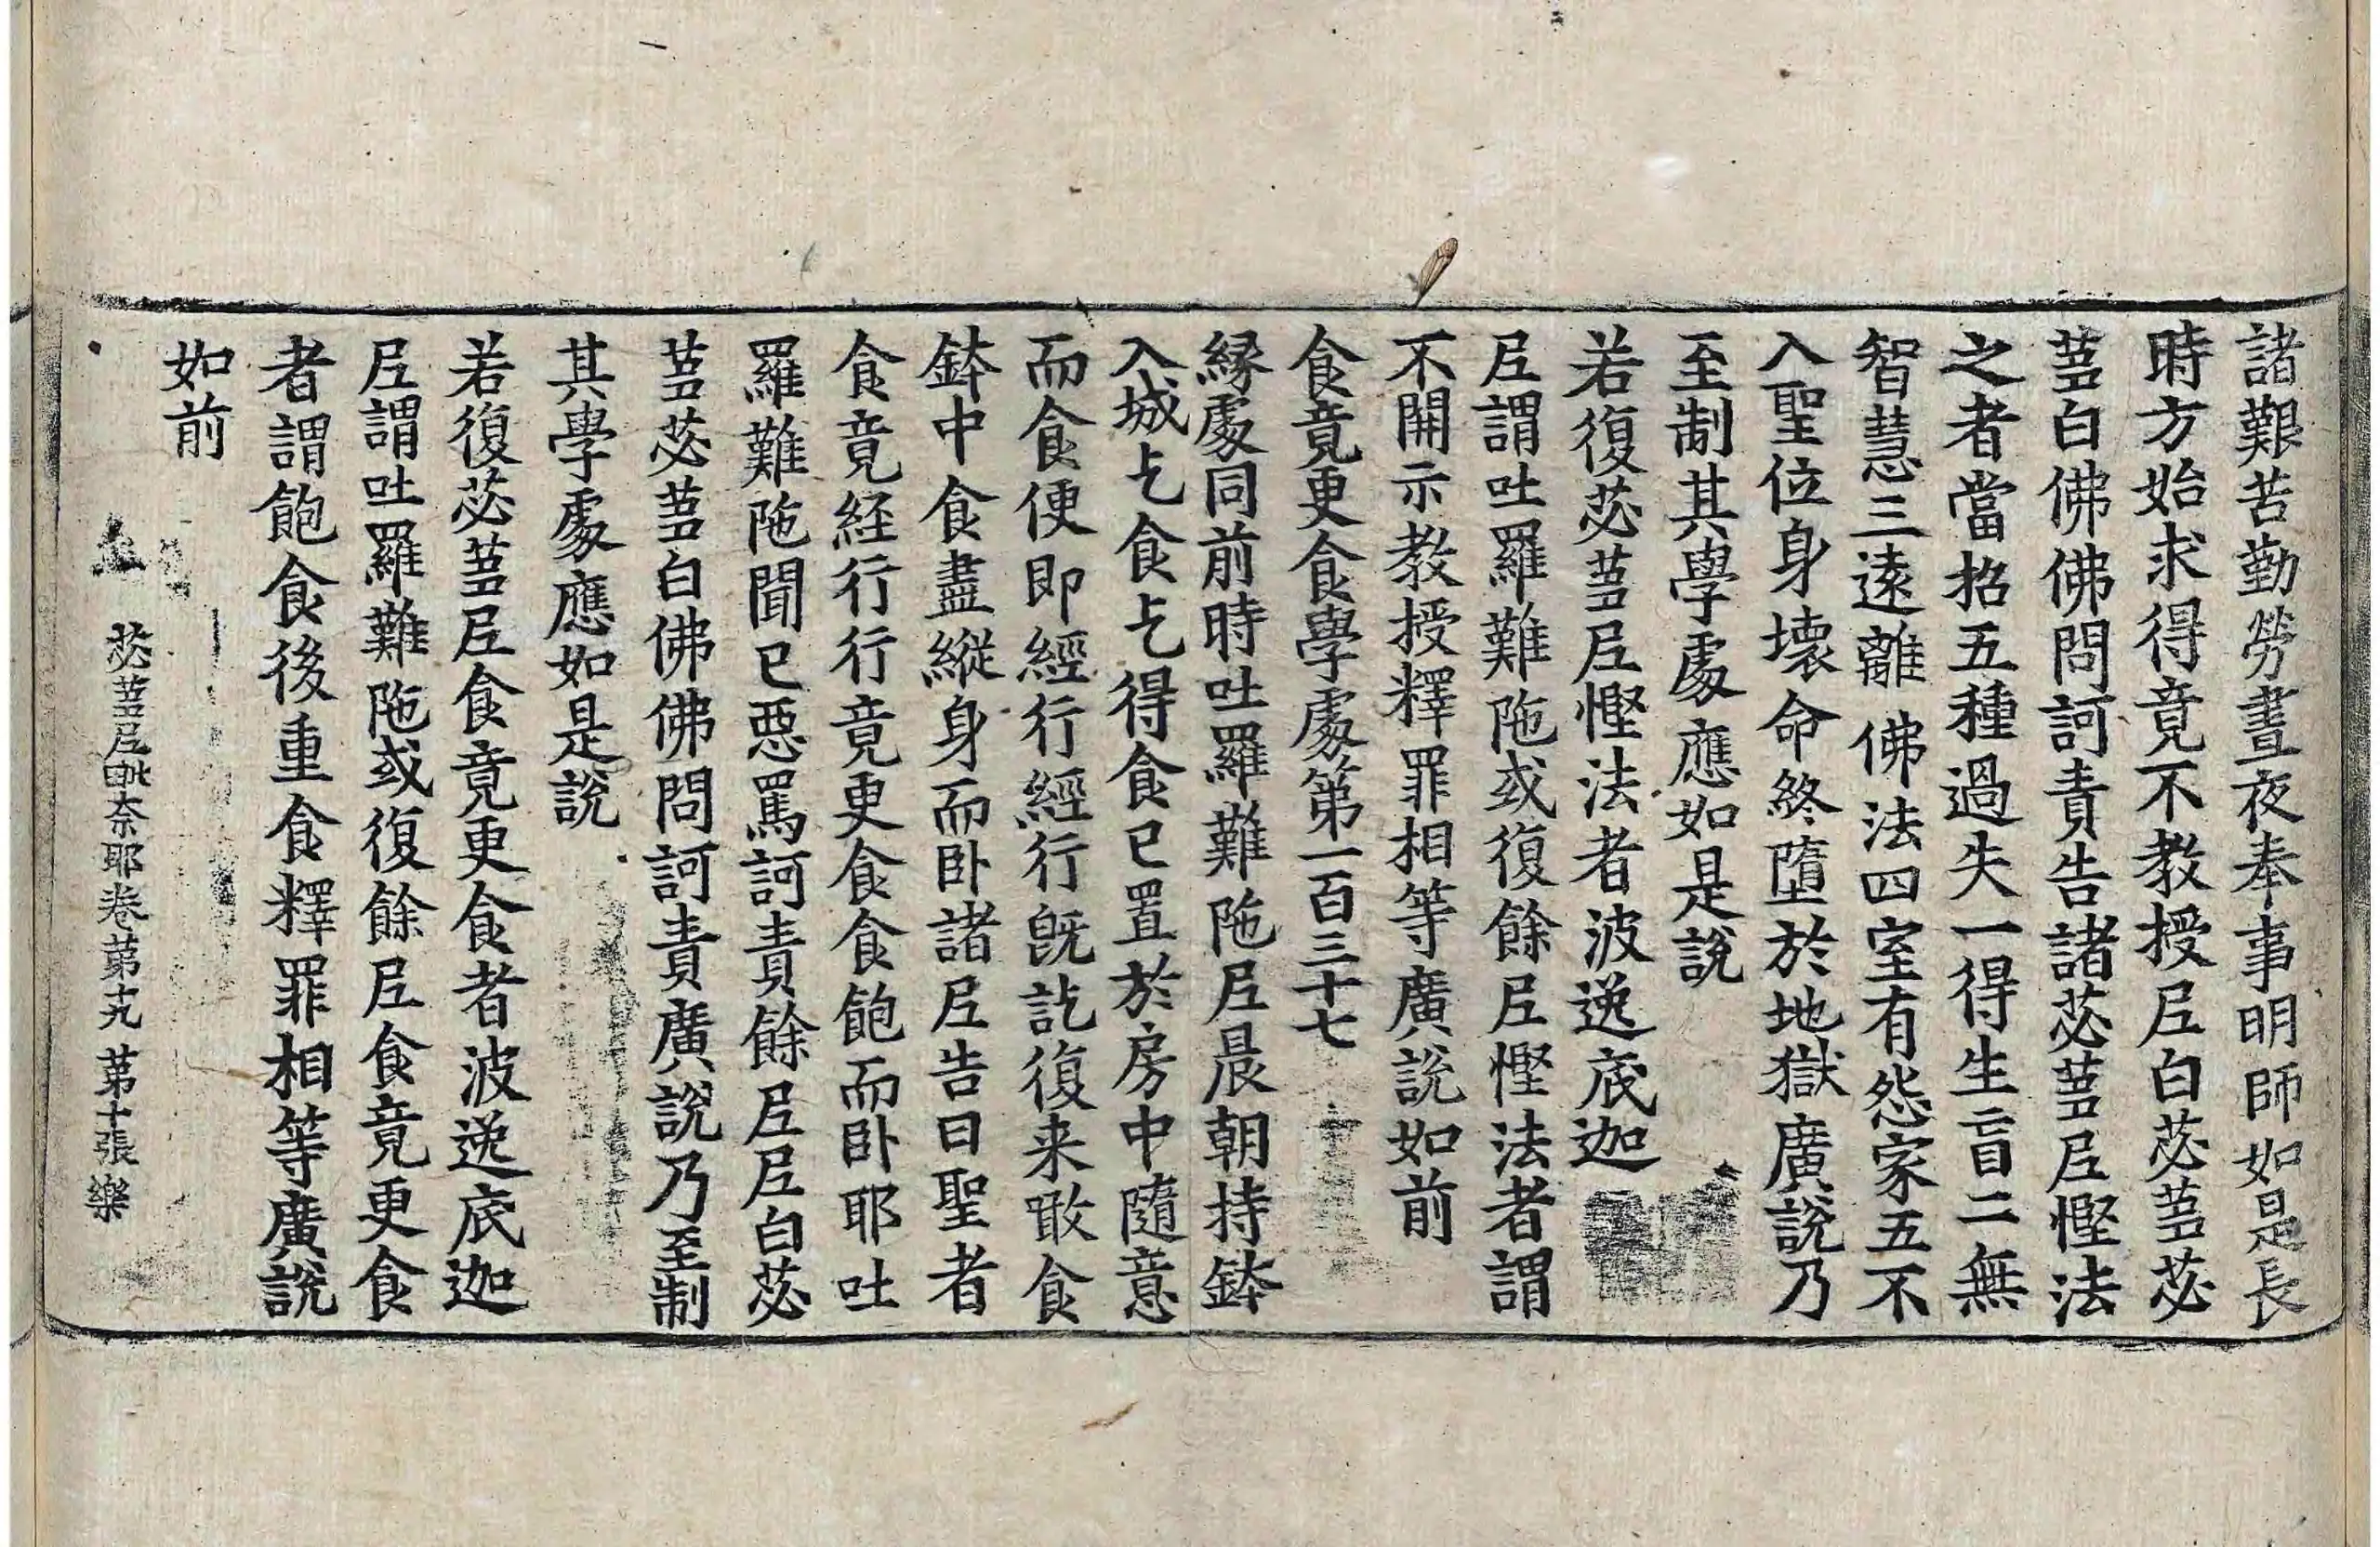 諸艱苦勤勞晝夜奉事明師如是長
時方始求得竟不教授尼白苾蒭苾
蒭白佛佛問訶責告諸苾蒭尼慳法
之者當招五種過失一得生盲二無
智慧三遠離佛法四室有怨家五不
入聖位身壞命終墮於地獄廣說乃
至制其學處應如是說
若復苾蒭尼慳法者波逸底迦
尼謂吐羅難陁或復餘尼慳法者謂
不開示教授釋罪相等廣說如前
食竟更食學處第一百三十七
緣處同前時吐羅難陁尼晨朝持鉢
入城乞食乞得食已置於房中隨意
而食便即經行經行旣訖復来噉食
鉢中食盡縱身而卧諸尼告曰聖者
食竟経行行竟更食食飽而卧耶吐
羅難陁聞已惡罵訶責餘尼尼白苾
蒭苾蒭白佛佛問訶責廣說乃至制
其學處應如是說
若復苾蒭尼食竟更食者波逸底迦
尼謂吐羅難陁或復餘尼食竟更食
者謂飽食後重食釋罪相等廣說
如前
苾蒭尼毗奈耶卷第十九 第十張 樂